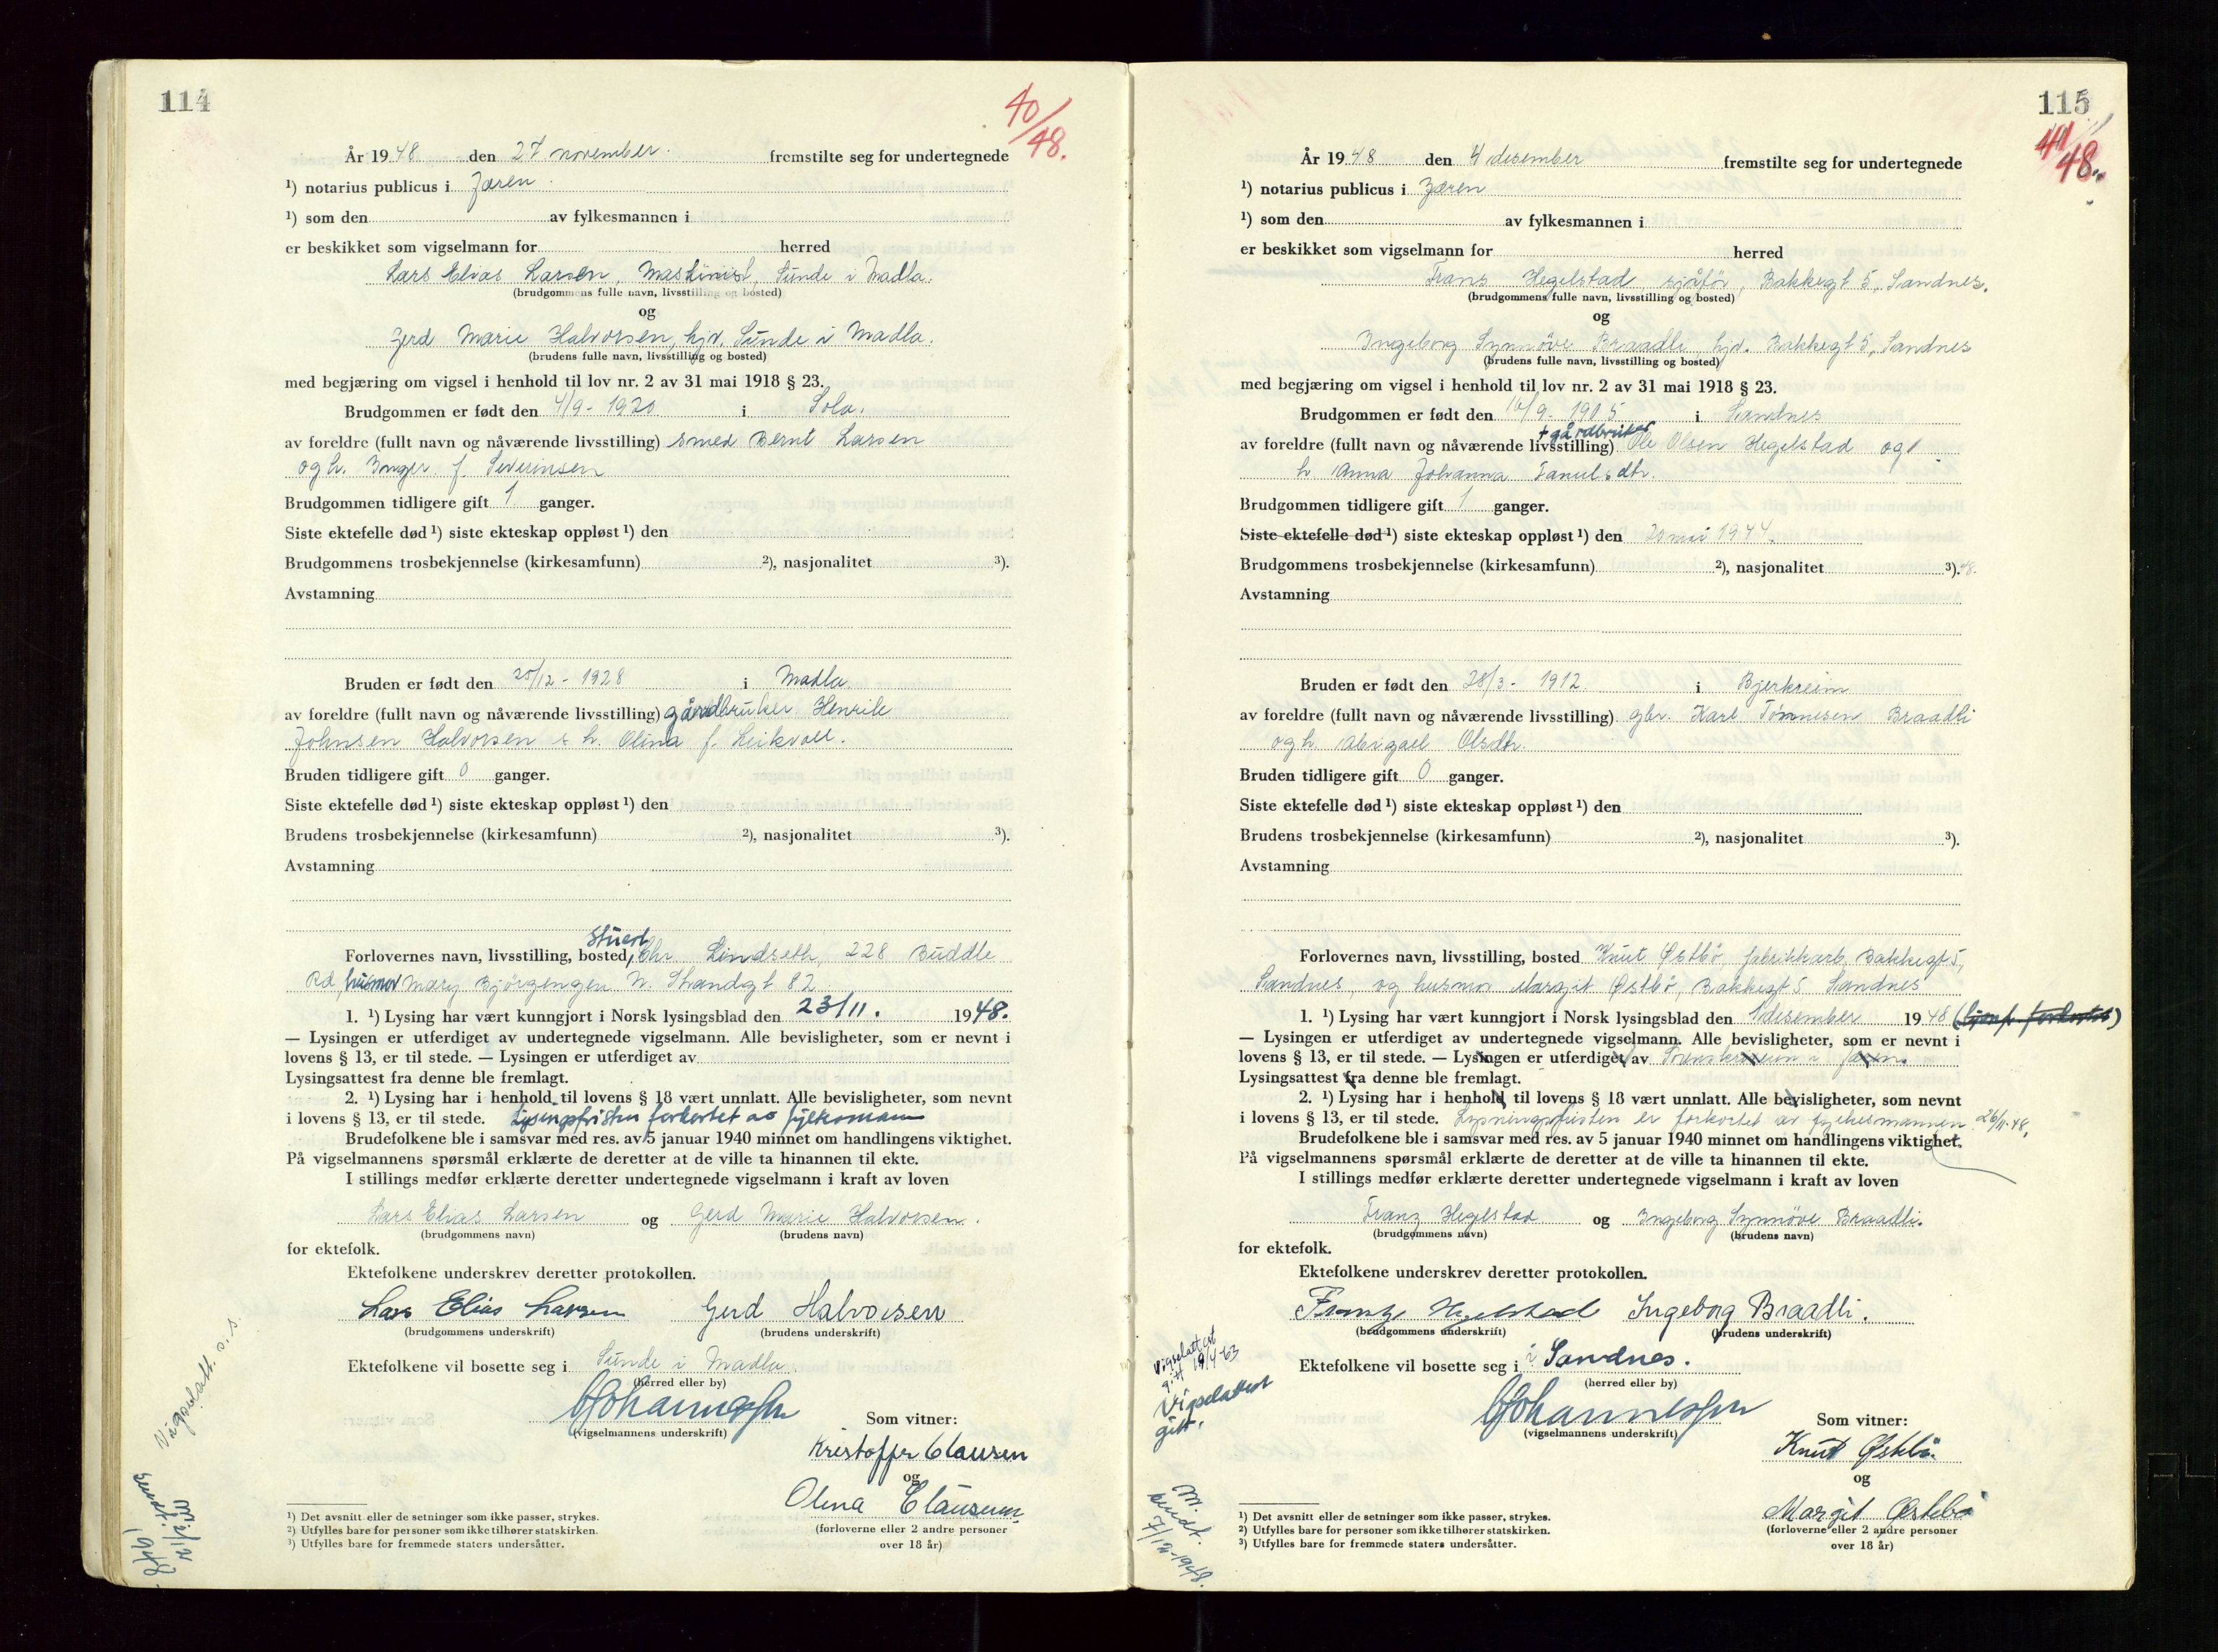 114
40/48.
År 1948 den 27 november. fremstilte seg for undertegnede
¹) notarius publicus i Jæren.
¹) som den av fylkesmannen i
er beskikket som vigselmann for herred
Lars Elias Larsen, Maskinist, Sunde i Madla.
(brudgommens fulle navn, livsstilling og bosted)
og
Gerd Marie Halvorsen, hjv. Sunde i Madla.
(brudens fulle navn, livsstilling og bosted)
med begjæring om vigsel i henhold til lov nr. 2 av 31 mai 1918 § 23.
Brudgommen er født den 4/9- 1920 i Sola.
av foreldre (fullt navn og nåværende livsstilling) smed Bernt Larsen
og h. Inger f. Severinsen
Brudgommen tidligere gift 1 ganger.
Siste ektefelle død ¹) siste ekteskap oppløst ¹) den
Brudgommens trosbekjennelse (kirkesamfunn) ²), nasjonalitet ³).
Avstamning
Bruden er født den 25/12- 1928 i Madla.
av foreldre (fullt navn og nåværende livsstilling) gårdbruker Henrik
Johnsen Halvorsen & h. Olina f. Leikvoll.
Bruden tidligere gift 0 ganger.
Siste ektefelle død ¹) siste ekteskap oppløst ¹) den
Brudens trosbekjennelse (kirkesamfunn) ²), nasjonalitet ³).
Avstamning
Stuert
Forlovernes navn, livsstilling, bosted, Chr. Lindseth, 228 Buddle
Rd, husmor Mary Bjørgengen N. Strandgt 82
1. ¹) Lysing har vært kunngjort i Norsk lysingsblad den 23/11. 1948.
— Lysingen er utferdiget av undertegnede vigselmann. Alle bevisligheter, som er nevnt i
lovens § 13, er til stede. — Lysingen er utferdiget av
Lysingsattest fra denne ble fremlagt.
2. ¹) Lysing har i henhold til lovens § 18 vært unnlatt. Alle bevisligheter, som nevnt
i lovens § 13, er til stede. Lysingsfristen forkortet av fylkesmann
Brudefolkene ble i samsvar med res. av 5 januar 1940 minnet om handlingens viktighet.
På vigselmannens spørsmål erklærte de deretter at de ville ta hinannen til ekte.
I stillings medfør erklærte deretter undertegnede vigselmann i kraft av loven
Lars Elias Larsen og Gerd Marie Halvorsen.
(brudgommens navn) (brudens navn)
for ektefolk.
Ektefolkene underskrev deretter protokollen.
Lars Elias Larsen Gerd Halvorsen
(brudgommens underskrift) (brudens underskrift)
Ektefolkene vil bosette seg i Sunde i Madla.
(herred eller by)
(vigselmannens underskrift)
Som vitner:
Kristoffer Clausen
og
Olena Clausen
(forloverne eller 2 andre personer
over 18 år)
¹) Det avsnitt eller de setninger som ikke passer, strykes.
²) Utfylles bare for personer som ikke tilhører statskirken.
³) Utfylles bare for fremmede staters undersåtter.
Vigselatt. s. s.
115
41/48.
År 1948 den 4 desember fremstilte seg for undertegnede
¹) notarius publicus i Jæren
¹) som den av fylkesmannen i
er beskikket som vigselmann for herred
Frans Hegelstad, sjåfør, Bakkegt 5, Sandnes.
(brudgommens fulle navn, livsstilling og bosted)
og
Ingeborg Synnöve Braadli hjv. Bakkegt 5, Sandnes
(brudens fulle navn, livsstilling og bosted)
med begjæring om vigsel i henhold til lov nr. 2 av 31 mai 1918 § 23.
Brudgommen er født den 16/9- 1905 i Sandnes
+ gårdbruker
av foreldre (fullt navn og nåværende livsstilling) Ole Olsen Hegelstad og
h Anna Johanna Tanulsdtr.
Brudgommen tidligere gift 1 ganger.
Siste ektefelle død ¹) siste ekteskap oppløst ¹) den 20 mai 1944
Brudgommens trosbekjennelse (kirkesamfunn) ²), nasjonalitet ³). 48.
Avstamning
Bruden er født den 28/3- 1912 i Bjerkreim
av foreldre (fullt navn og nåværende livsstilling) gbr. Karl Tønnesen Braadli
og h. Abigael Olsdtr.
Bruden tidligere gift 0 ganger.
Siste ektefelle død ¹) siste ekteskap oppløst ¹) den
Brudens trosbekjennelse (kirkesamfunn) ²), nasjonalitet ³).
Avstamning
Forlovernes navn, livsstilling, bosted Knut Østbø, fabrikkarb. Bakkegt 5,
Sandnes, og husmor Margit Østbø, Bakkegt 5 Sandnes
1. ¹) Lysing har vært kunngjort i Norsk lysingsblad den 1 desember 1948
— Lysingen er utferdiget av undertegnede vigselmann. Alle bevisligheter, som er nevnt i
lovens § 13, er til stede. — Lysingen er utferdiget av
Lysingsattest fra denne ble fremlagt.
2. ¹) Lysing har i henhold til lovens § 18 vært unnlatt. Alle bevisligheter, som nevnt
i lovens § 13, er til stede. Lysningsfristen er forkortet av fylkesmannen 26/11-48.
Brudefolkene ble i samsvar med res. av 5 januar 1940 minnet om handlingens viktighet.
På vigselmannens spørsmål erklærte de deretter at de ville ta hinannen til ekte.
I stillings medfør erklærte deretter undertegnede vigselmann i kraft av loven
Franz Hegelstad og Ingeborg Synnöve Braadli.
(brudgommens navn) (brudens navn)
for ektefolk.
Ektefolkene underskrev deretter protokollen.
Frantz Hegelstad Ingeborg Braadli.
(brudgommens underskrift) (brudens underskrift)
Ektefolkene vil bosette seg i i Sandnes.
(herred eller by)
(vigselmannens underskrift)
Som vitner:
Knut Østbø.
og
Margit Østebø
(forloverne eller 2 andre personer
over 18 år)
¹) Det avsnitt eller de setninger som ikke passer, strykes.
²) Utfylles bare for personer som ikke tilhører statskirken.
³) Utfylles bare for fremmede staters undersåtter.
Vigselattest
gitt.
M.
sendt.
7/12-1948.